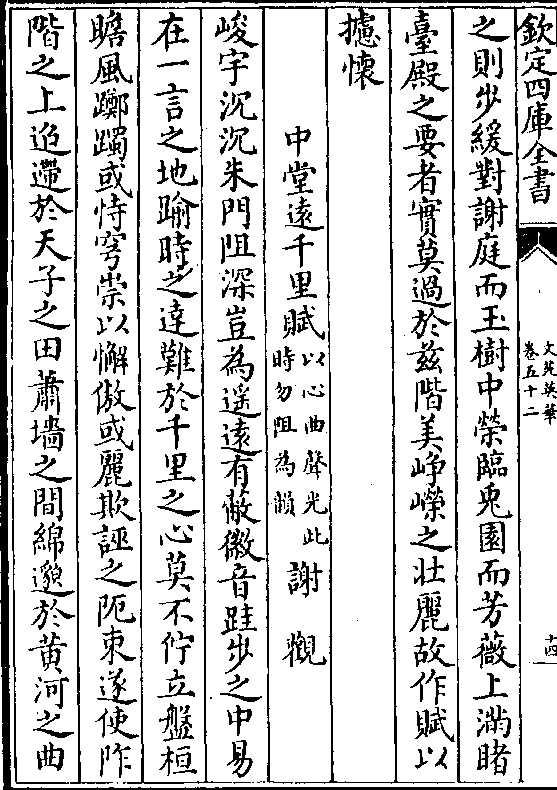 欽定四庫全書
文苑英華
卷五十二
十四
之則步緩對謝庭而玉樹中榮臨兎園而芳薇上滿睹
臺殿之要者實莫過於兹階美崢嶸之壯麗故作賦以
攄懷
中堂遠千里賦以心曲聲光此時勿阻為韻 謝觀
峻宇沉沉朱門阻深豈為遥遠有蔽徽音跬步之中易
在一言之地踰時之達難於千里之心莫不佇立盤桓
瞻風躑躅或恃穹崇以懈傲或麗欺誣之阨束遂使阼
階之上迢遰於天子之田蕭墻之間綿邈於黄河之曲